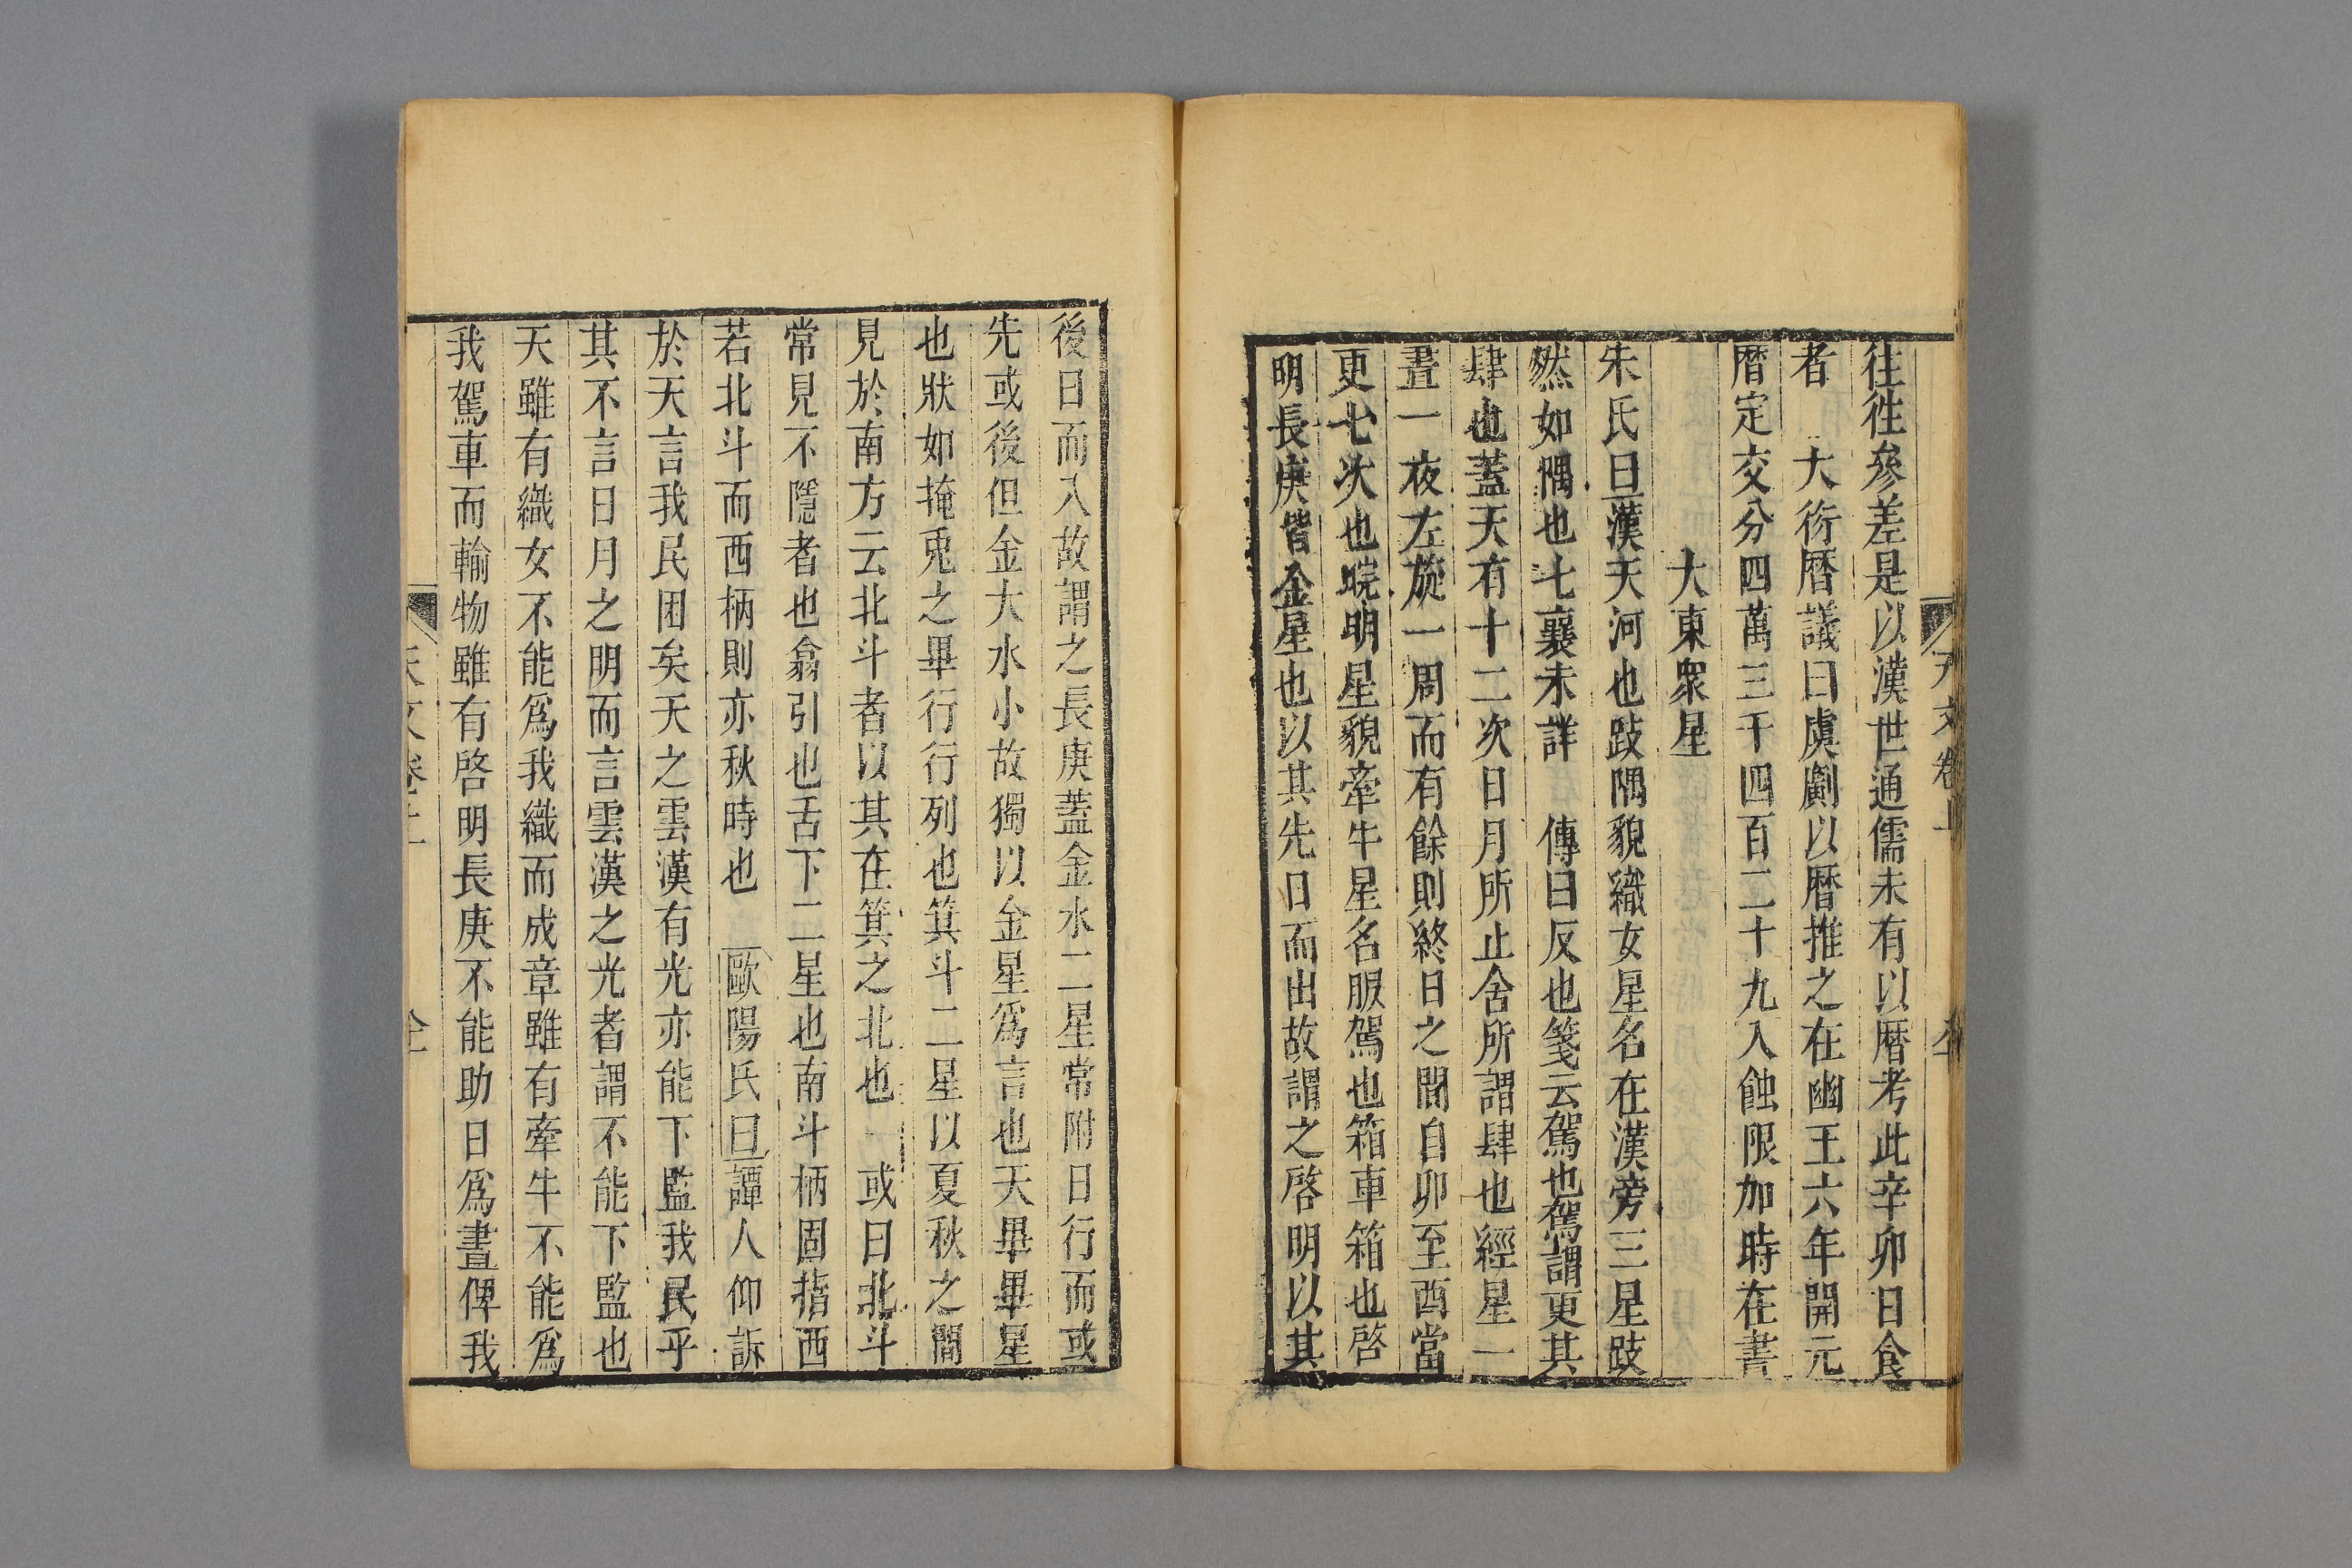 天文卷上
徃徃參差是以漢世通儒未有以暦考此辛卯日食
者 大衍暦議曰虞𠠎以暦推之在幽王六年開元
暦定交分四萬三千四百二十九入蝕限加時在晝
大東衆星
朱氏曰漢天河也跂隅貌織女星名在漢旁三星跂
然如隅也七襄未詳 傳曰反也箋云駕也駕謂更其
肆也蓋天有十二次日月所止舍所謂肆也經星一
晝一夜左旋一周而有餘則終日之間自卯至酉當
更七次也睆明星貌牽牛星名服駕也箱車箱也啓
明長庚皆金星也以其先日而出故謂之啓明以其
後日而入故謂之長庚蓋金水二星常附日行而或
先或後但金大水小故獨以金星爲言也天畢畢星
也狀如掩兎之畢行行列也箕斗二星以夏秋之間
見於南方云北斗者以其在箕之北也 或曰北斗
常見不隱者也翕引也舌下二星也南斗柄固指西
若北斗而西柄則亦秋時也 歐陽氏曰譚人仰訴
於天言我民困矣天之雲漢有光亦能下監我民乎
其不言日月之明而言雲漢之光者謂不能下監也
天雖有織女不能爲我織而成章雖有牽牛不能爲
我駕車而輸物雖有啓明長庚不能助日爲晝俾我
天文卷上